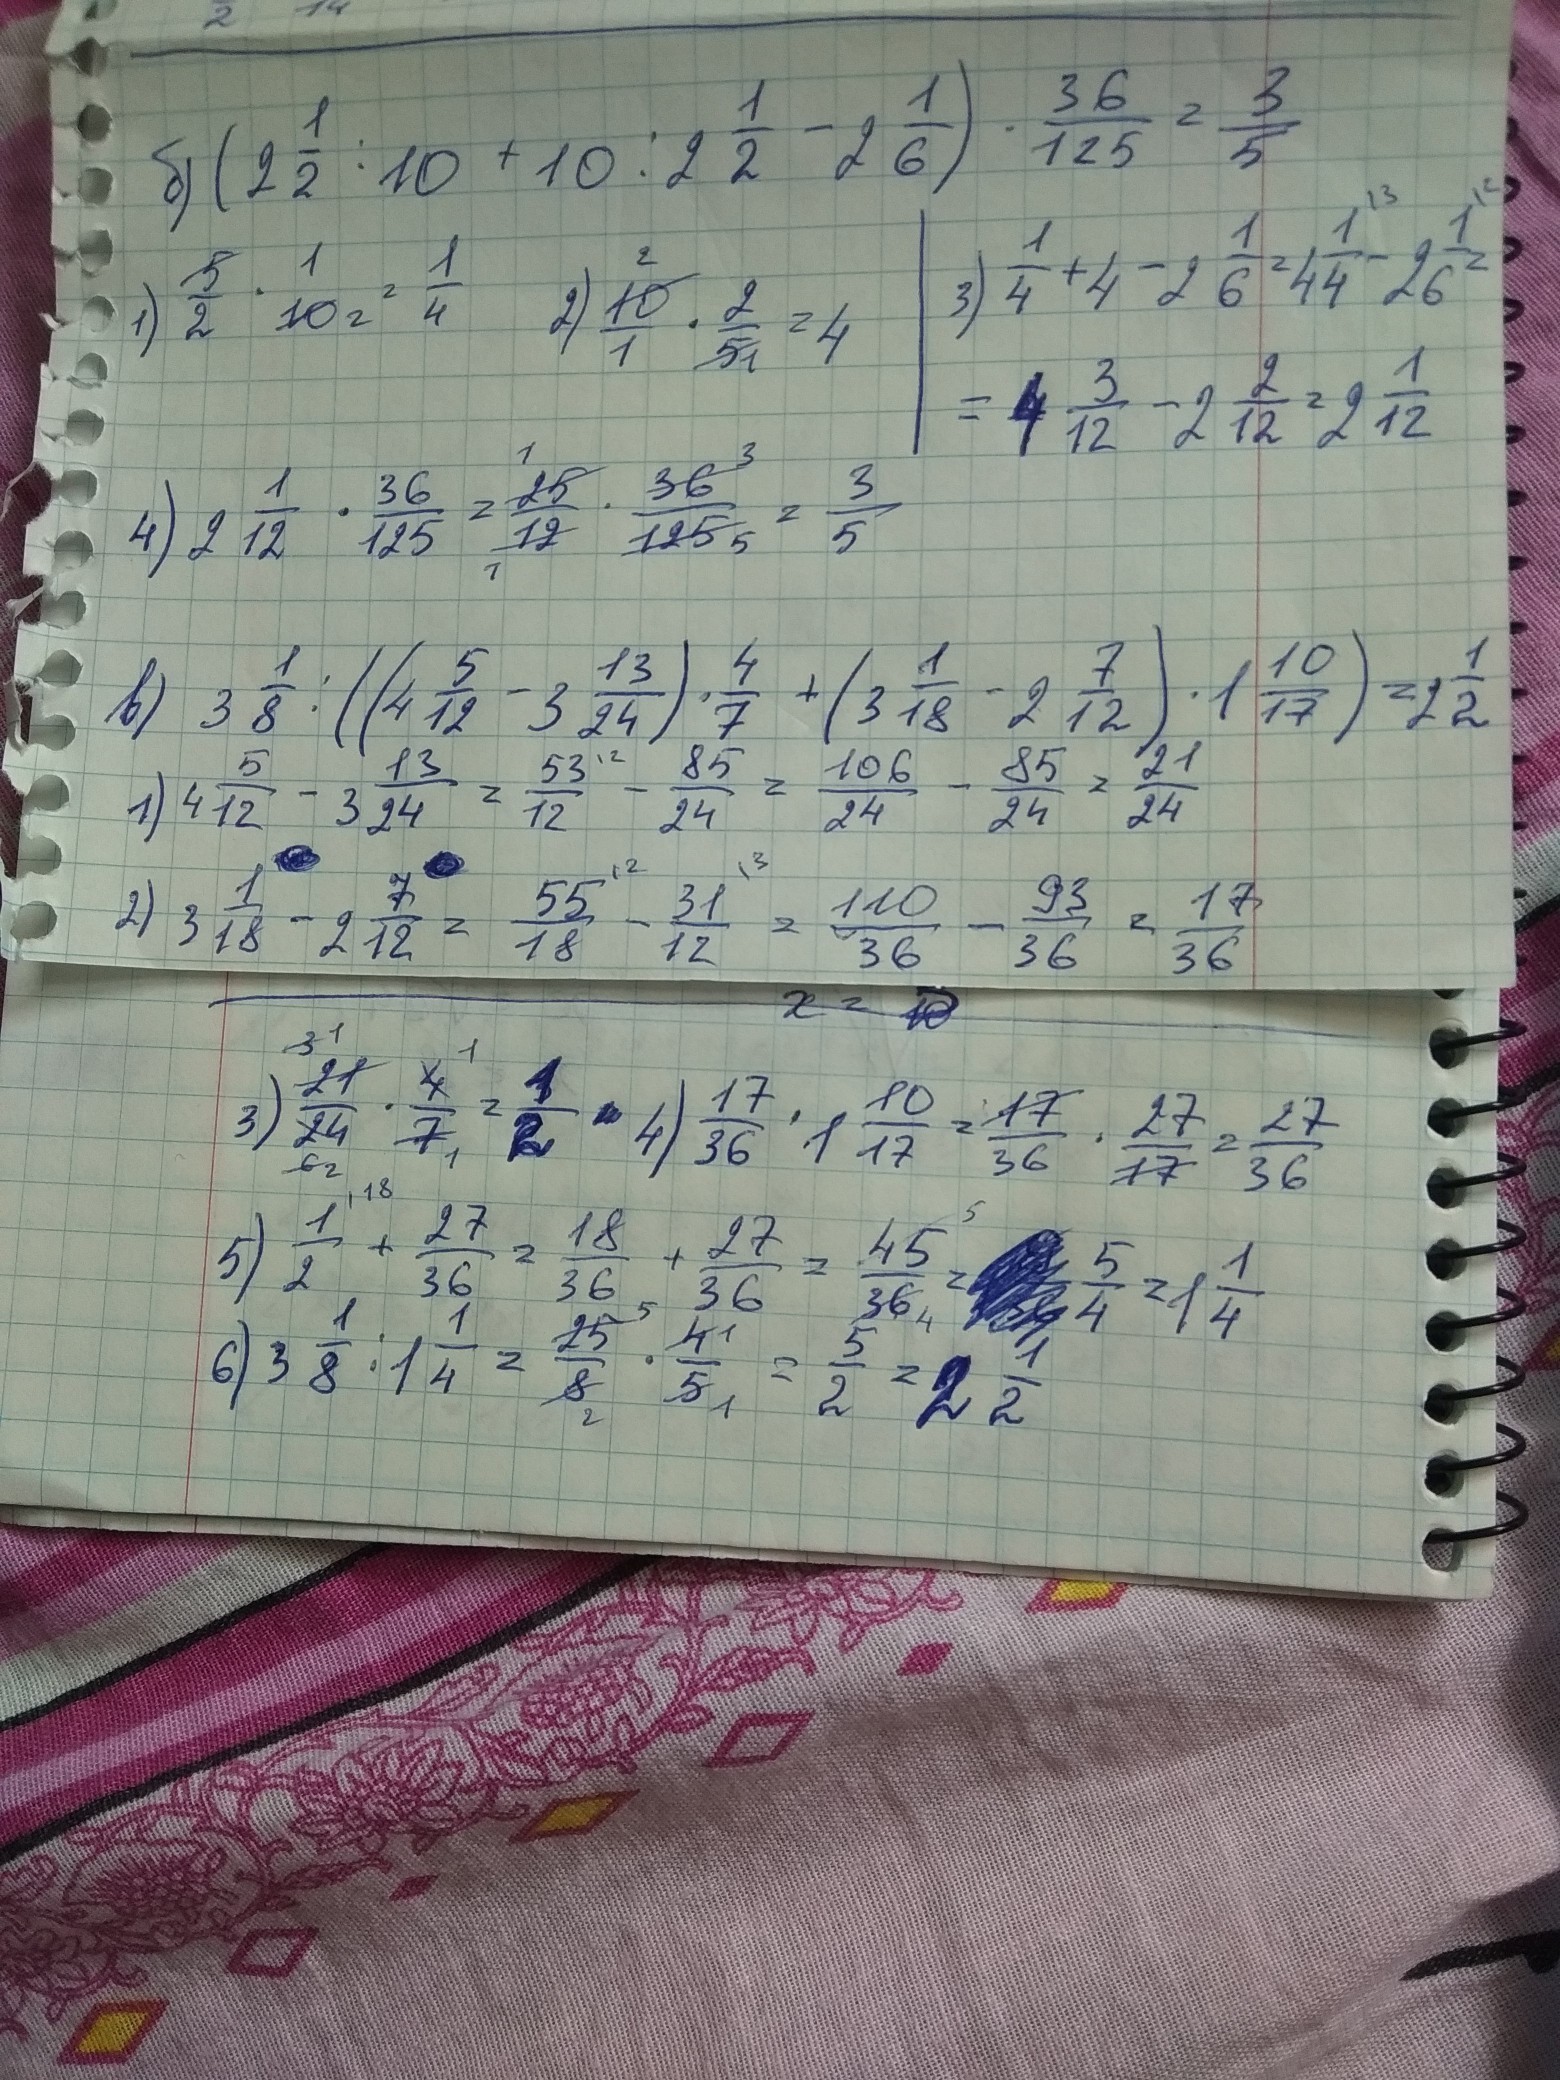 2 14
б) (2 1/2 : 10 + 10 : 2 1/2 - 2 1/6) · 36/125 = 3/5
1) 5/2 · 1/10 2 = 1/4 2) 10 2/1 · 2/5 1 = 4 3) 1/4 + 4 - 2 1/6 = 4 1/4 \3 - 2 1/6 \2 =
= 4 3/12 - 2 2/12 = 2 1/12
4) 2 1/12 · 36/125 = 25 1/12 1 · 36 3/125 5 = 3/5
в) 3 1/8 : ((4 5/12 - 3 13/24) · 4/7 + (3 1/18 - 2 7/12) · 1 10/17) = 2 1/2
1) 4 5/12 - 3 13/24 = 53 \2/12 - 85/24 = 106/24 - 85/24 = 21/24
2) 3 1/18 - 2 7/12 = 55 \2/18 - 31 \3/12 = 110/36 - 93/36 = 17/36
x =
3) 21 3 1/24 6 2 · 4 1/7 1 = 1/2 4) 17/36 · 1 10/17 = 17/36 · 27/17 = 27/36
5) 1 \18/2 + 27/36 = 18/36 + 27/36 = 45 5/36 4 = 5/4 = 1 1/4
6) 3 1/8 : 1 1/4 = 25 5/8 2 · 4 1/5 1 = 5/2 = 2 1/2